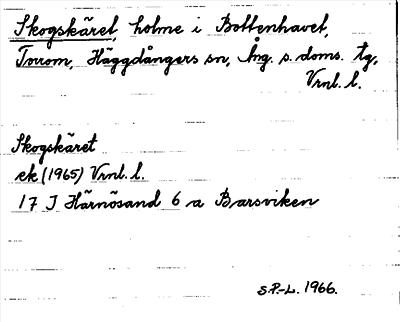 Skogskäret, holme i Bottenhavet,
Torrom, Häggdångers sn, Ång. s. doms. tg,
Vrnl. l.
Skogskäret
ek (1965) Vrnl. l.
17 I Härnösand 6 a Barsviken
S.P.-L. 1966.